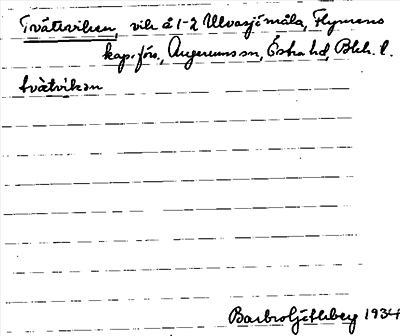 Tvättviken, vik å 1-2 Ulvasjömåla, Flymens
kap.förs., Augerums sn, Östra hd, Blek. l.
tvätvikan
Barbro Ljétleberg 1934